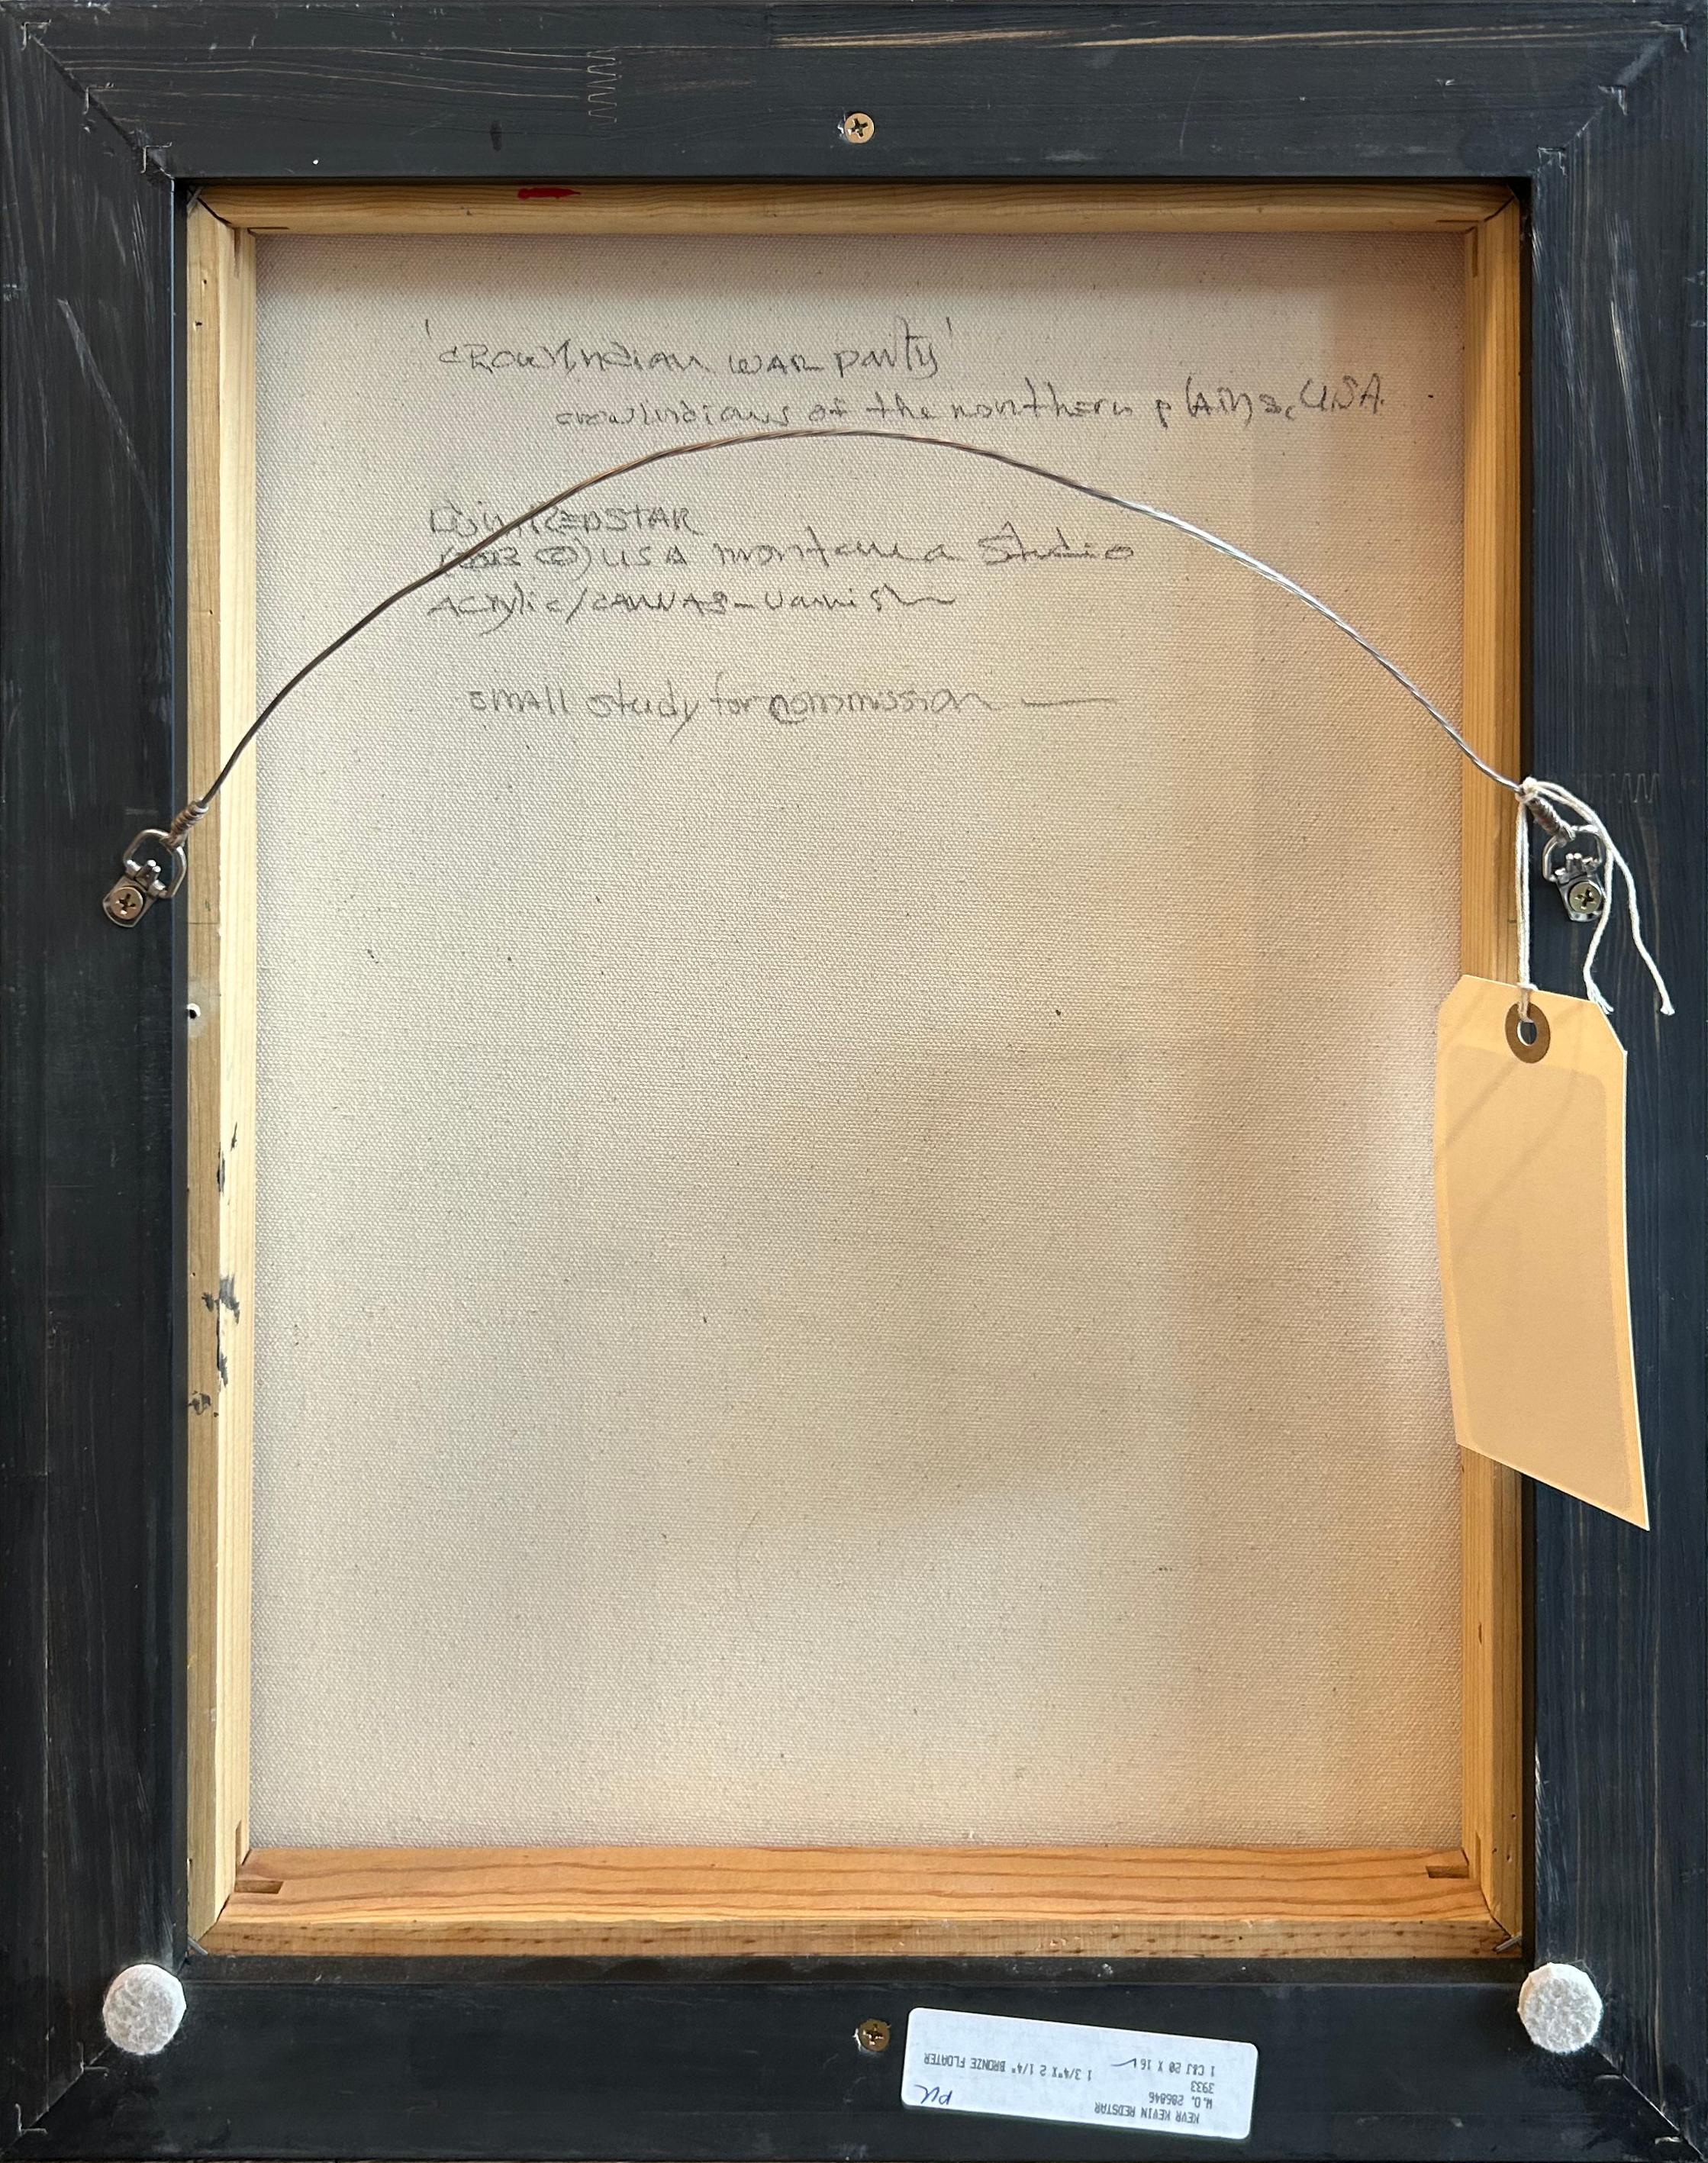 'CROW Indian WAR party'
crow indians of the northern plains, USA.
KEVIN REDSTAR
USA montana Studio
Acrylic/CANVAS-Varnish
small study for commission
KEVR KEVIN REDSTAR
W.O. 206846
3933
1 C&J 20 X 16 1 3/4"X 2 1/4" BRONZE FLOATER